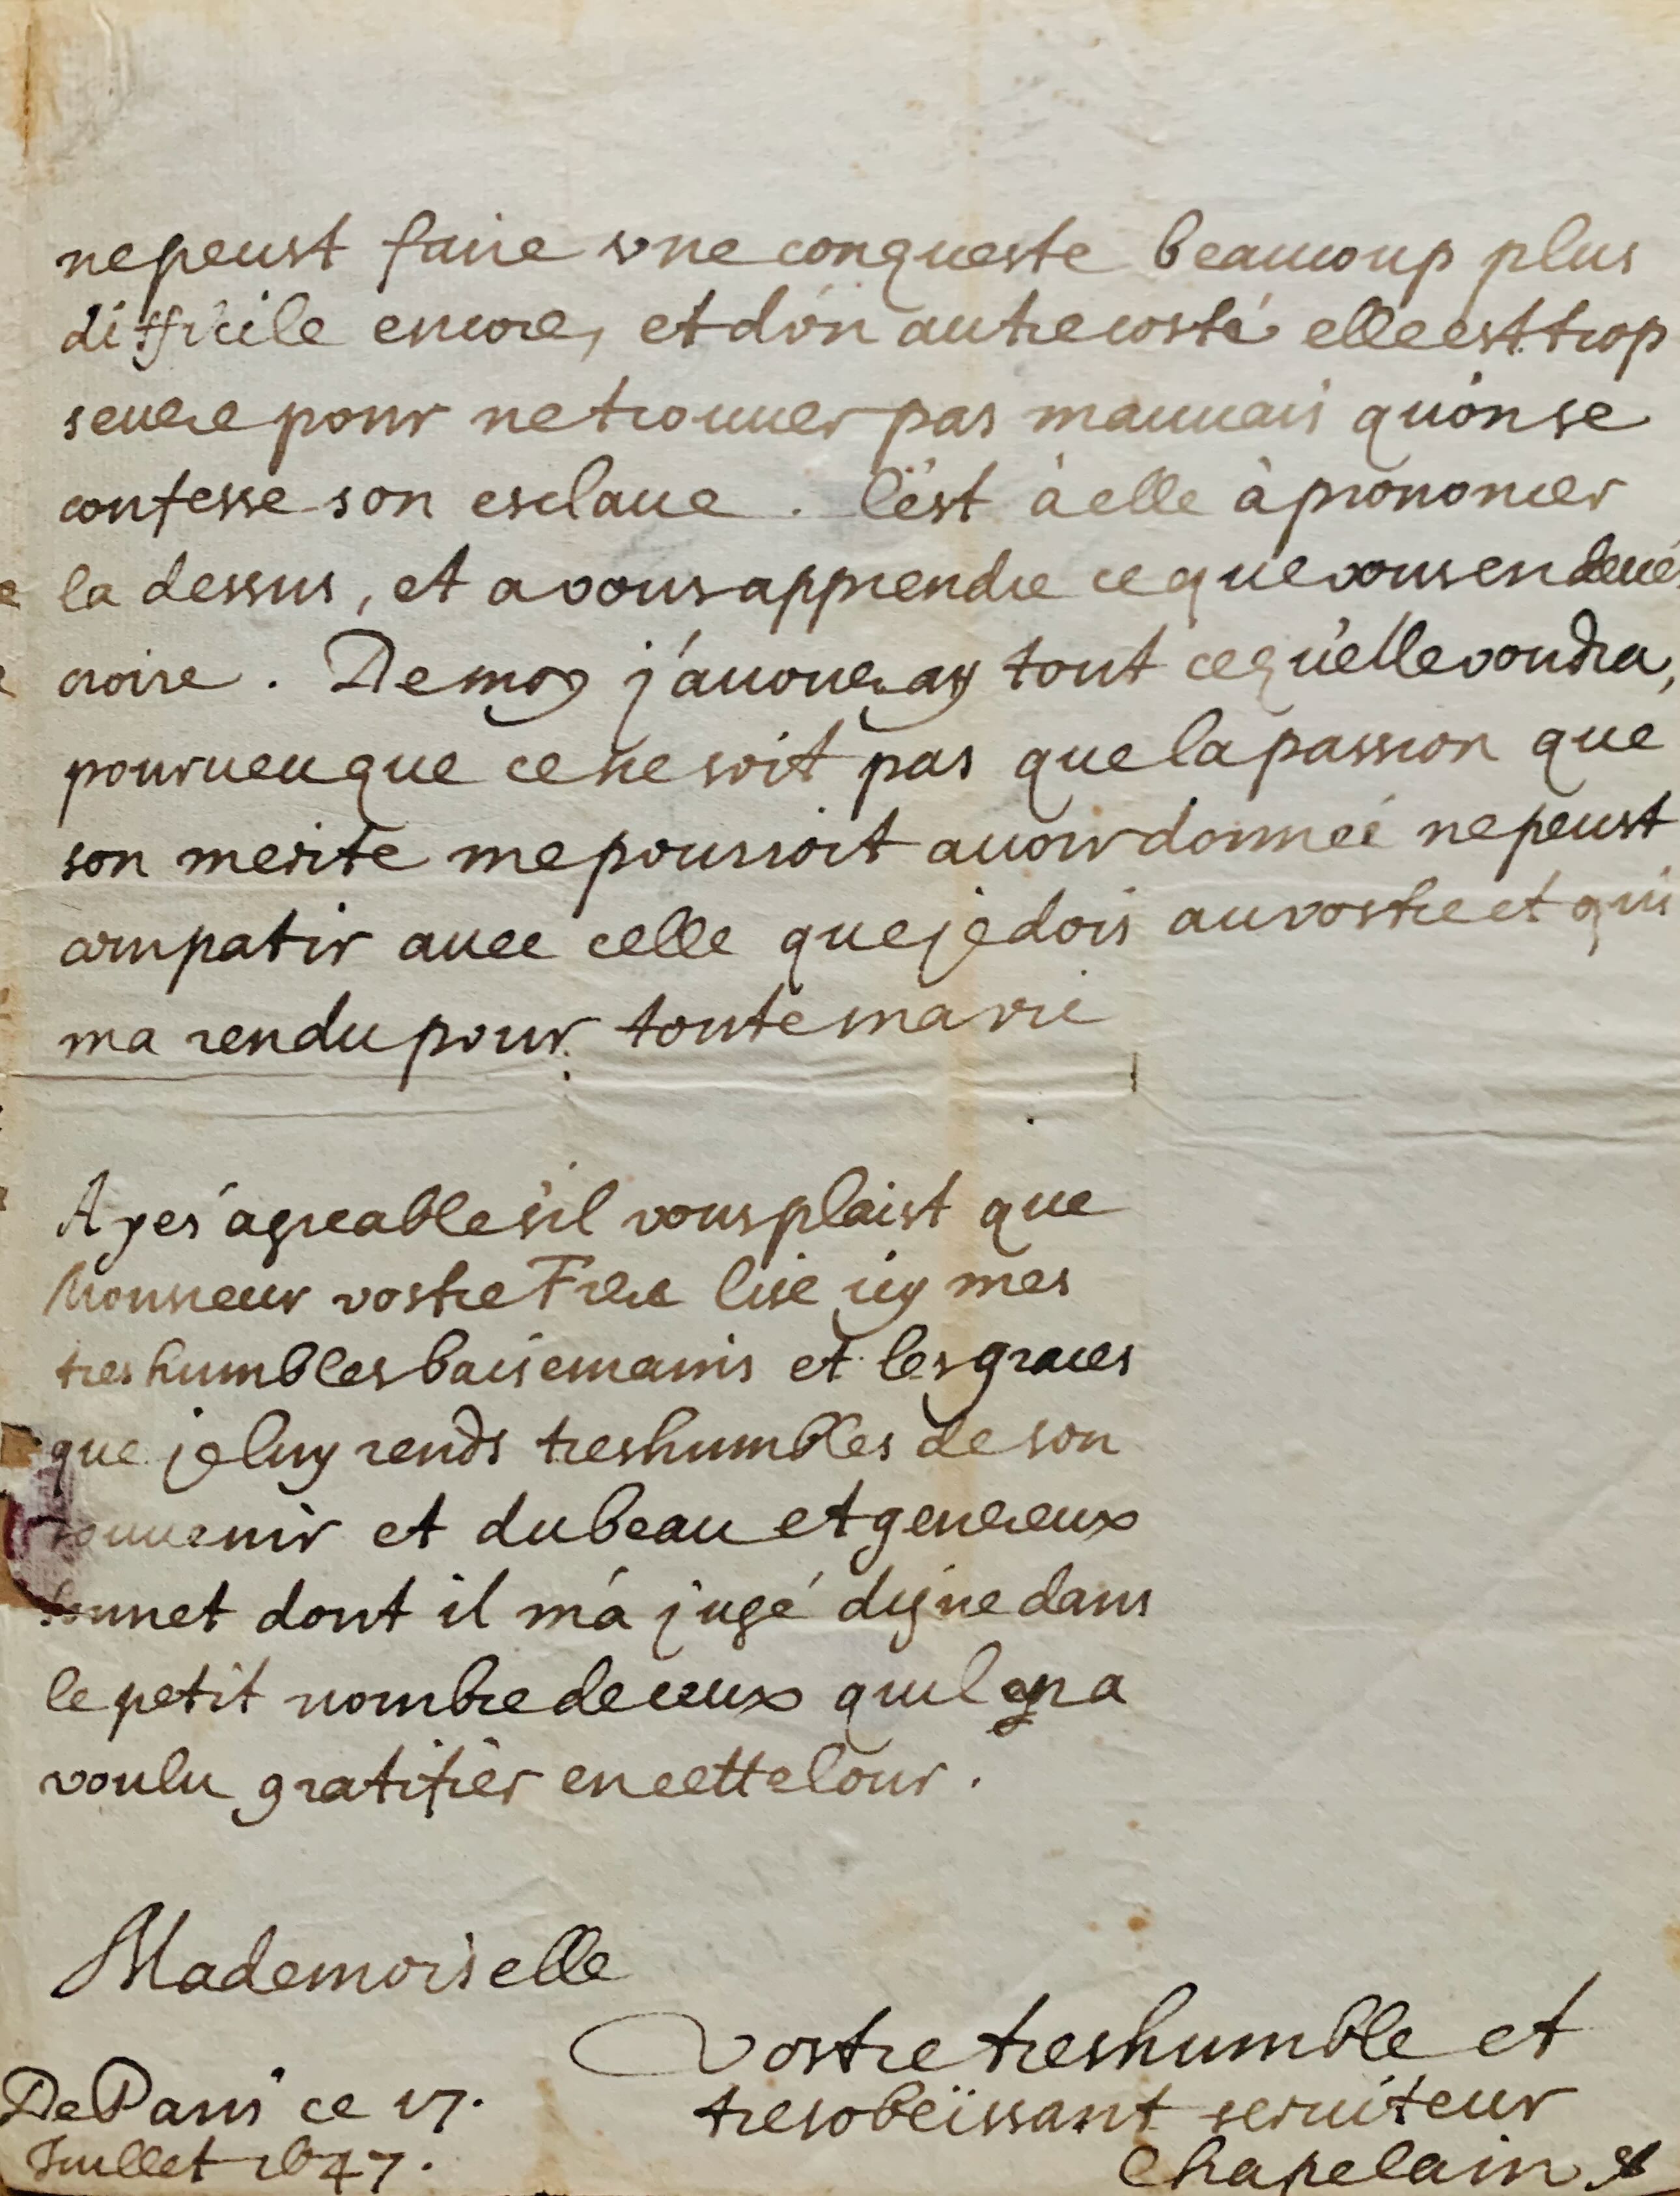 ne peust faire vne conqueste beaucoup plus
difficile encore, et d'vn autre costé elle est trop
seuere pour ne trouuer pas mauuais qu'on se
confesse son esclaue. C'est à elle à prononcer
la dessus, et a vous apprendre ce que vous en deués
croire. De moy j'auoueray tout ce qu'elle voudra,
pourueu que ce ne soit pas que la passion que
son merite me pourroit auoir donnée ne peust
compatir auec celle que je dois au vostre et qui
ma rendu pour toute ma vie
Ayés agreable s'il vous plaist que
Monsieur vostre Frere lise icy mes
tres humbles baisemains et les graces
que je luy rends tres humbles de son
souuenir et du beau et genereux
sonnet dont il m'a jugé digne dans
le petit nombre de ceux quil en a
voulu gratifier en cette Cour.
Mademoiselle
Vostre tres humble et
tres obeïssant seruiteur
Chapelain
De Paris ce 17.
Juillet 1647.